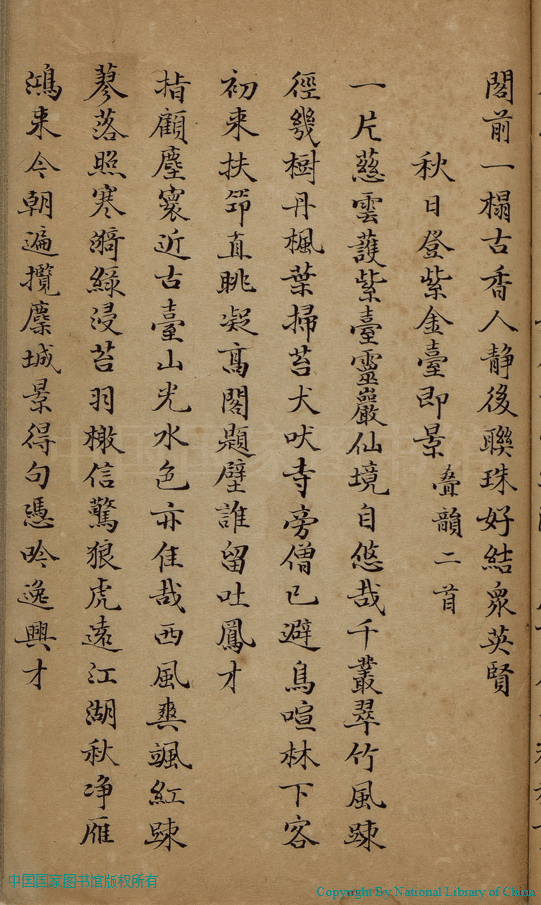 閣前一榻古香人静後聯珠好結衆英賢
秋日登紫金臺即景 叠韻二首
一片慈雲護紫臺靈巖仙境自悠哉千叢翠竹風踈
徑幾樹丹楓葉掃苔犬吠寺旁僧已避鳥喧林下客
初来扶筇直眺凝髙閣題壁誰留吐鳳才
指顧塵寰近古臺山光水色亦佳哉西風爽颯紅踈
蓼落照寒漪緑浸苔羽檄信驚狼虎遠江湖秋净雁
鴻来今朝遍攬麈城景得句憑吟逸興才
中国国家图书馆版权所有
Copyright By National Library of China